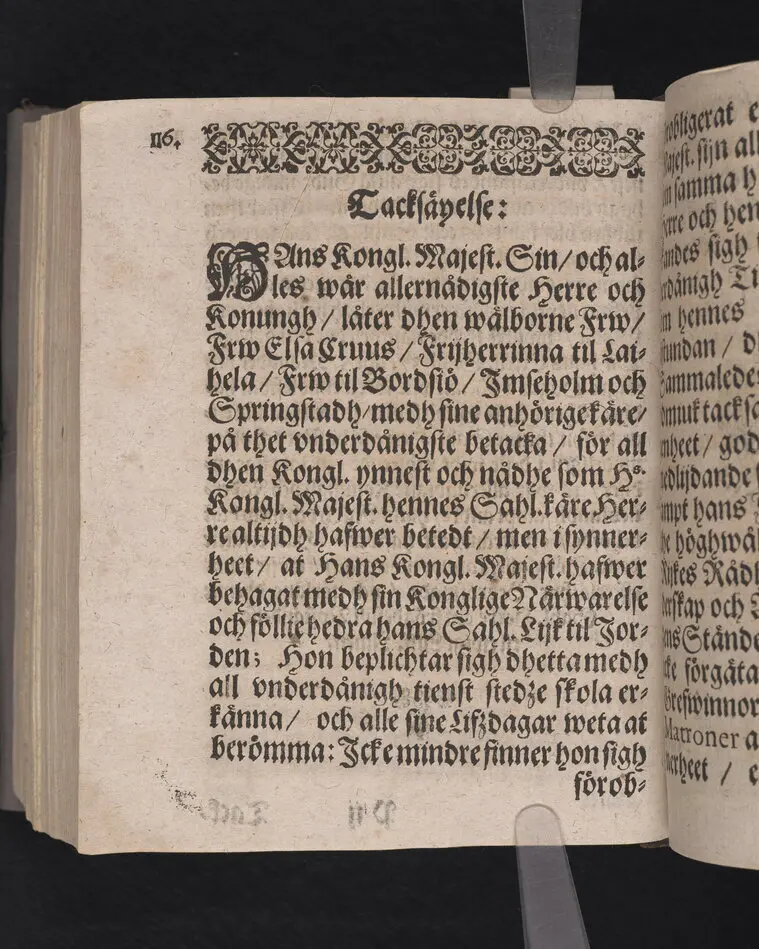 116.
Tacksäyelse:
HAns Kongl. Majest. Sin/ och al-
les wår allernådigste Herre och
Konungh / låter dhen wälborne Frw/
Frw Elsa Cruus / Frijherrinna til Lai-
hela / Frw til Bordsiö / Imseholm och
Springstadh/ medh sine anhörige käre/
på thet vnderdånigste betacka / för all
dhen Kongl. ynnest och nådhe som Hs.
Kongl. Majest. hennes Sahl. käre Her-
re altijdh hafwer betedt / men i synner-
heet / at Hans Kongl. Majest. hafwer
behagat medh sin Konglige Närwarelse
och föllie hedra hans Sahl. Lijk til Jor-
den; Hon beplichtar sigh dhetta medh
all vnderdånigh tienst stedze skola er-
känna / och alle sine Lifzdagar weta at
berömma: Icke mindre finner hon sigh
förob-
obligerat
Majest. sijn all
samma
och
sigh
hennes
/
tacksa
/ god
hans
höghwäl
Rådh
och
Stände
förgäta
Matroner
/